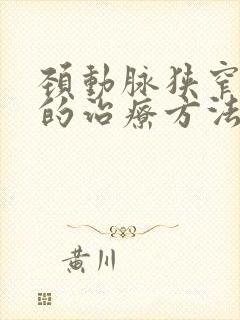 頚動脉狭窄
的治療方法
黄川